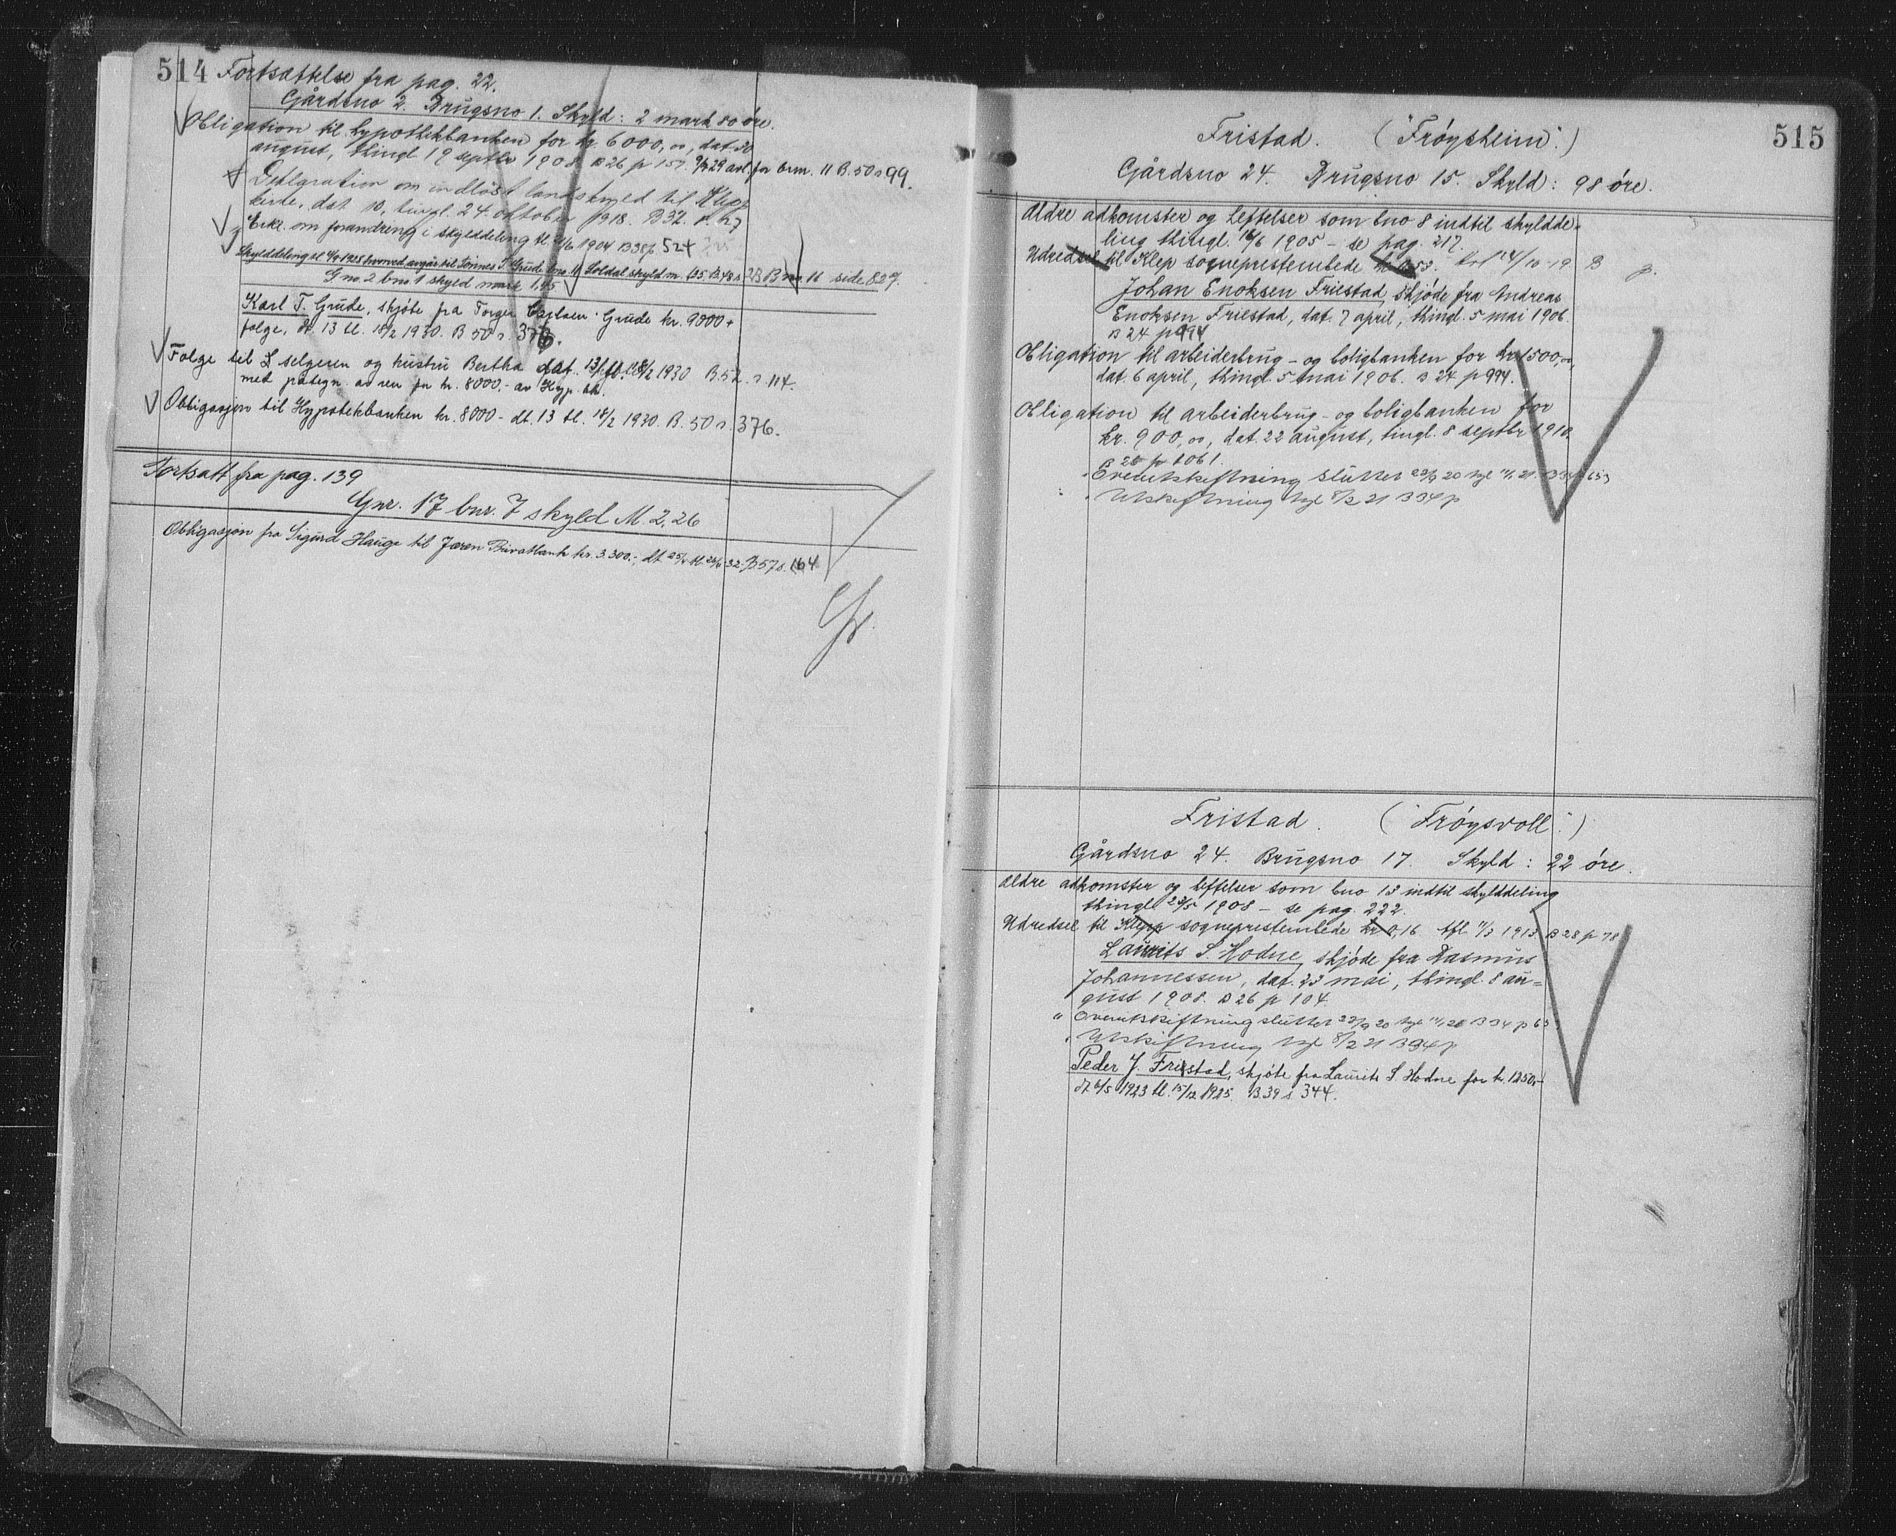 514 Fortsættelse fra pag. 22.
Gårdsno 2. Brugsno 1. Skyld: 2 mark 80 øre.
Obligation til hypothekbanken for kr 6000,oo, dat. 20
august, thingl 19 septbr 1908. B 26 p 157. 9/3 29 avl. for 11 B. 50 s 99.
Deklaration om indløst landskyld til Klepp
kirke, dat 10, tingl. 24. oktober 1918. B 32. p. 67
Erkl. om forandring i skylddeling tl. 1904 B 38 p 524
Skylddeling tl 1925 hvorved avgår til Tønnes T. Grude bno 11 Soldal skyld m.
Gno. 2 bno 1 skyld mark 1,45
Bno 11 side 827.
Karl T. Grude, skjøte fra Torger Grude kr. 9800 +
følge, dt. 13 tl. 18/2 1930. B 50 s. 376.
Folge til selgeren og hustru Bertha dat. 13/2 tl. 18/2 1930 B. 52 s. 114.
med påtegn. av for kr. 8000.- av Hyp. bk.
Obligasjon til Hypotekbanken kr. 8000 - dt. 13 tl. 18/2 1930. B. 50 s. 376.
Fortsatt fra pag. 139
Gnr. 17 bnr. 7 skyld M. 2,26
Obligasjon fra Sigurd Hauge til Jæren Privatbank kr. 3.300.-, dt 25/5 tl. 32. B 57 s. 164
515
Fristad. ("Frøysheim".)
Gårdsno 24. Brugsno 15. Skyld: 98 øre.
Ældre adkomster og heftelser som bno 8 indtil skyldde=
ling thingl. 16/6 1905 – se pag. 217.
Udredsel til Klep sogneprestembede kr 0.53. 24/10-19 B p.
Johan Enoksen Friestad, skjøde fra Andreas
Enoksen Friestad, dat. 7 april, thingl. 5 mai 1906.
B 24 p 994
Obligation til arbeiderbrug- og boligbanken for kr. 1500,oo,
dat. 6 april, thingl. 5 mai 1906. B 24 p 994.
Obligation til arbeiderbrug- og boligbanken for
kr. 900,oo, dat. 22 august, tingl. 8 septbr 1910.
B 26 p 1061.
" Overutskiftning sluttet 22/9 20 tgl. B 34 p 653
" Utskiftning tgl 8/2 21 B 34 p
Fristad. ("Frøysvoll".)
Gårdsno 24. Brugsno 17. Skyld: 22 øre.
Ældre adkomster og heftelser som bno 13 indtil skylddeling
thingl 22/5 1908 – se pag. 222.
Udredsel til Klepp sogneprestembede kr 0,16 Afl. 11/3 1913 B 28 p 78
Laurits S. Hodne, skjøde fra Rasmus
Johannessen, dat. 23 mai, thingl. 8 au=
gust 1908. B 26 p 104.
" Overutskiftning sluttet 22/9 20 tgl B 34 p 65
" Utskiftning tgl 8/2 21 B 34 p
Peder J. Friestad, skjøte fra Laurits S. Hodne for kr. 1250,-
dt 6/5 1923 tl. 15/12 1925. B 39 s 344.